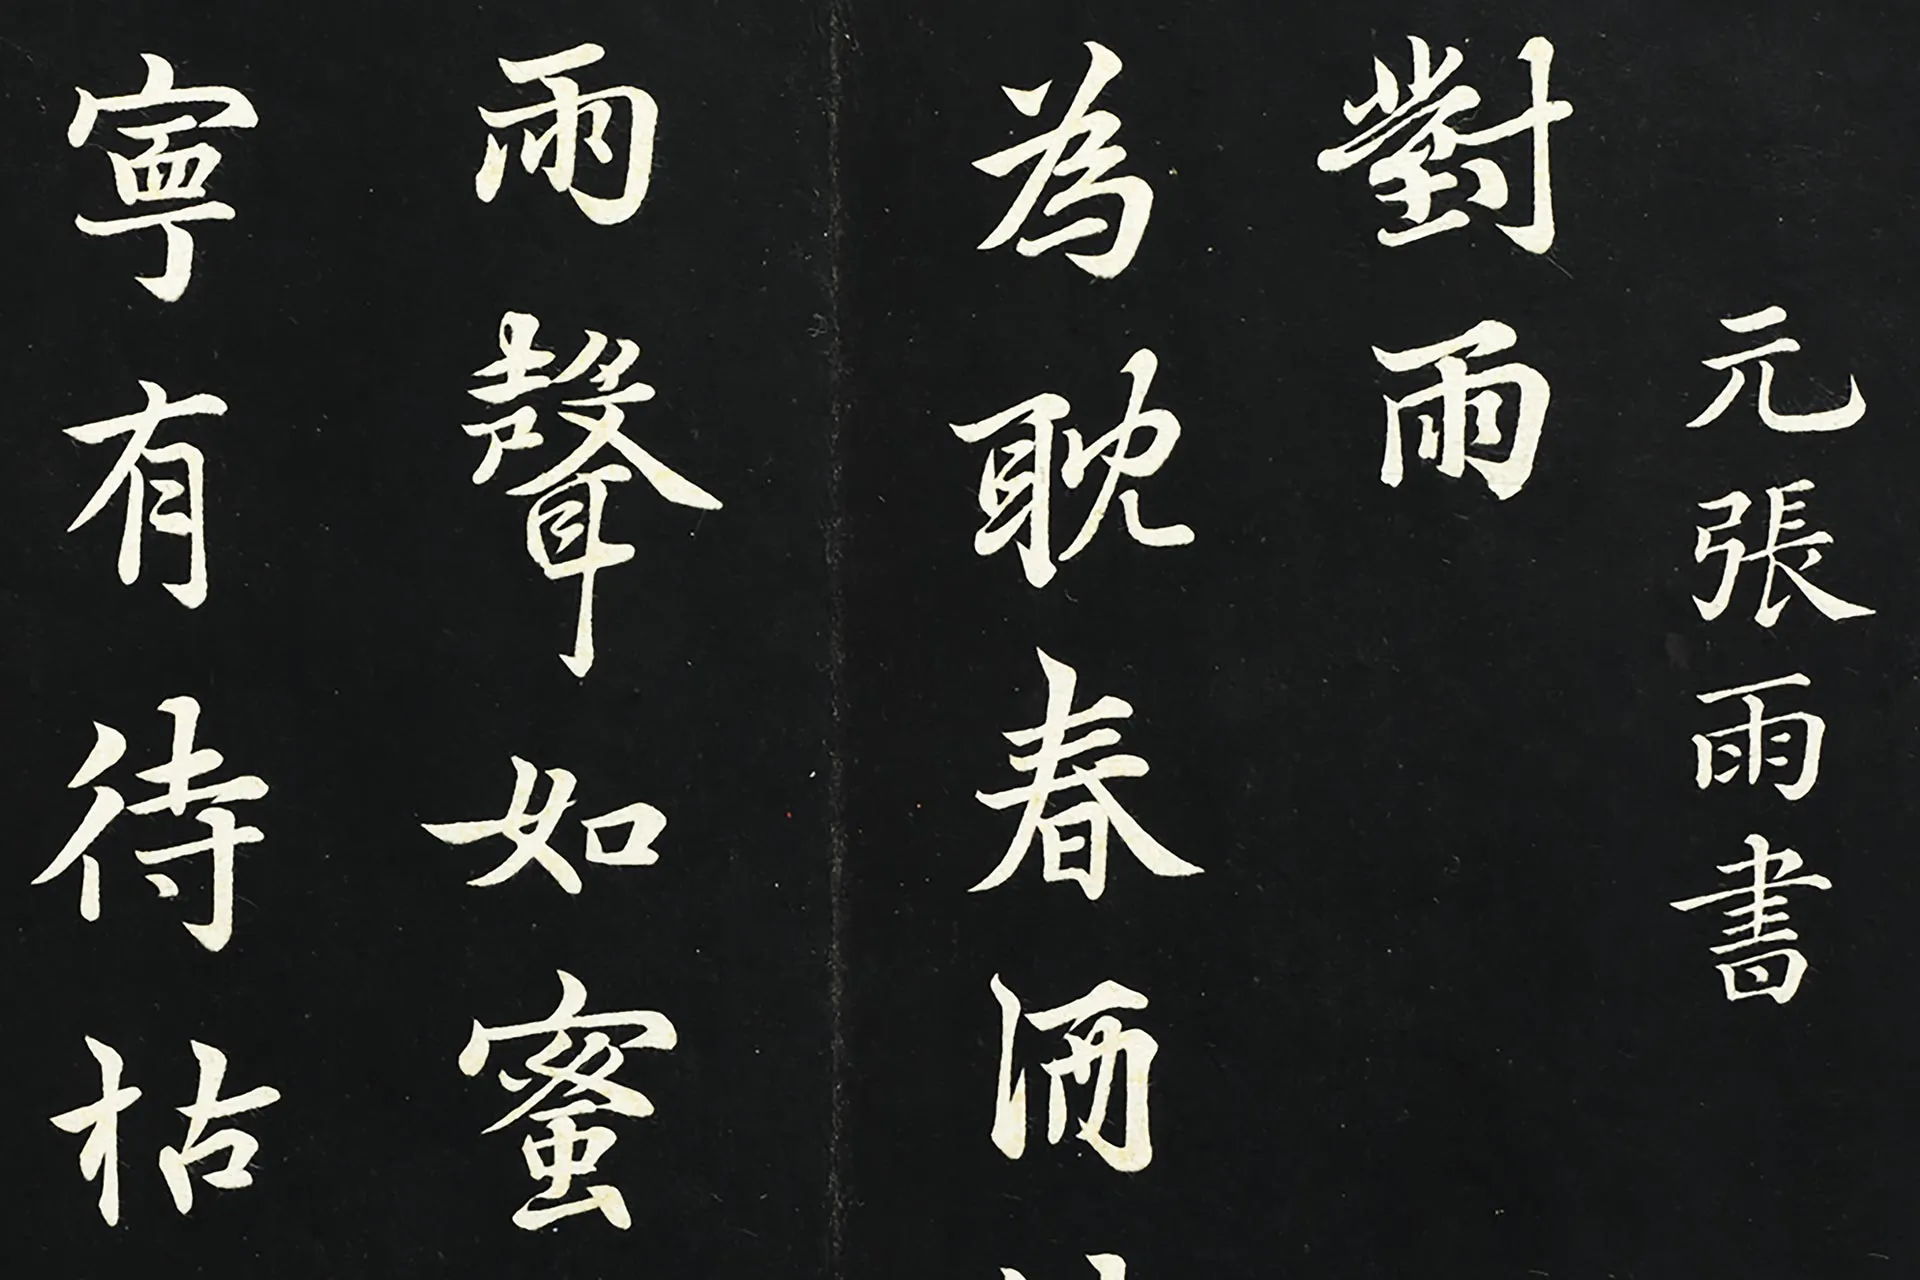 元張雨書
對雨
為耽春洒
雨聲如蜜
寧有待枯